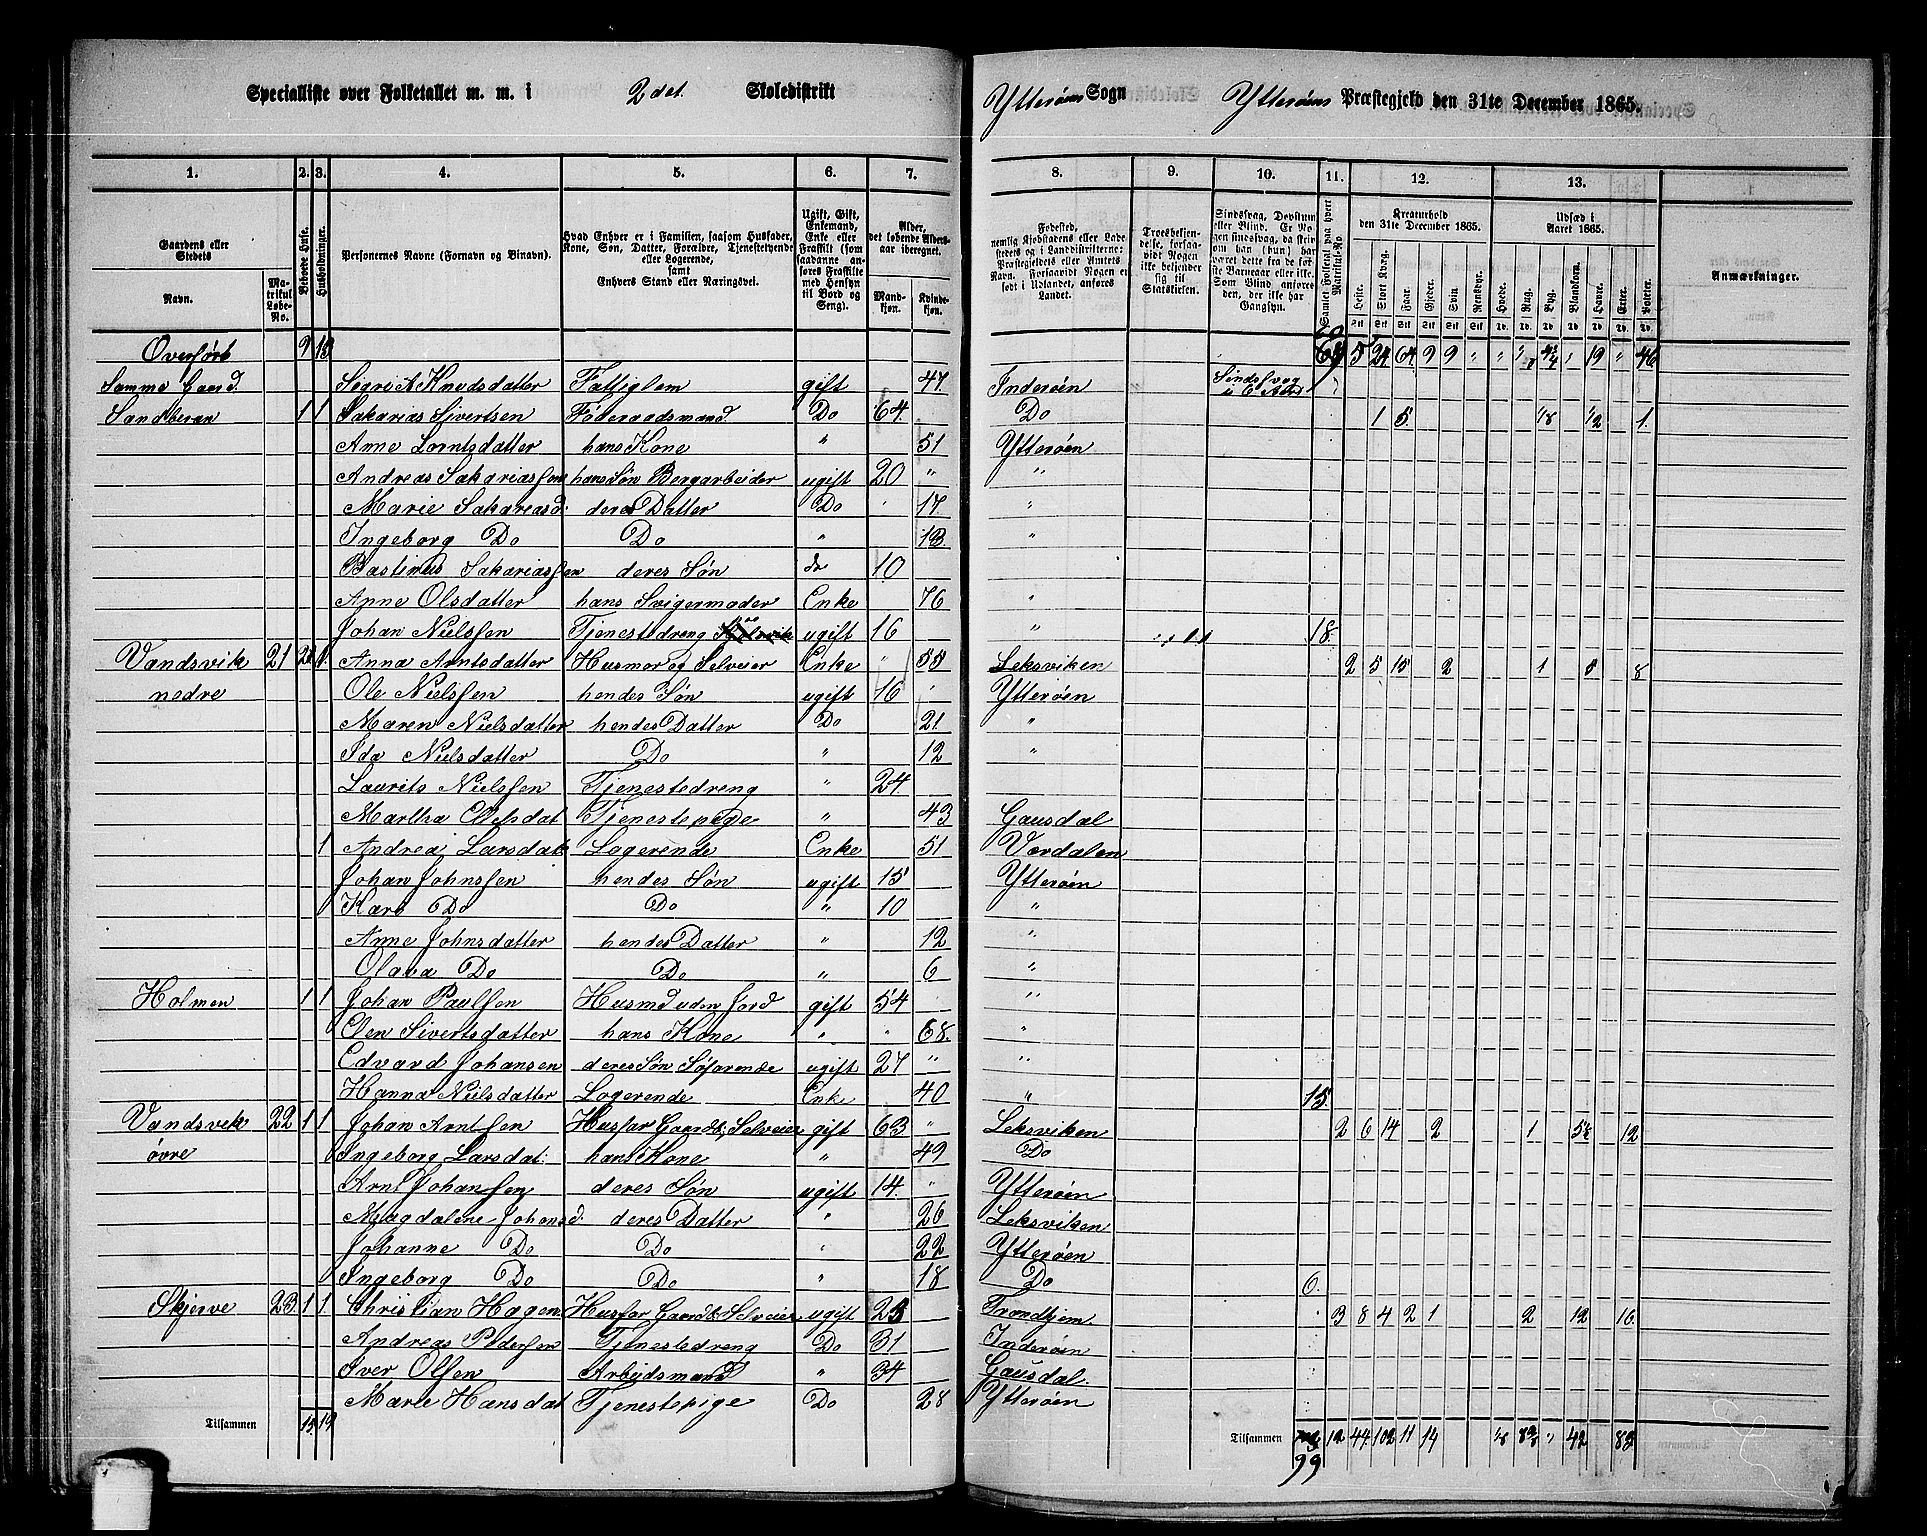 Specialliste over Folketallet m. m. i 2det Skoledistrikt Ytterøens Sogn Ytterøens Præstegjeld den 31te December 1865.
1. 2. 3. 4. 5. 6. 7. 8. 9. 10. 11. 12. 13. 1.
Gaardens eller Stedets
Navn.
Matrikul Løbe-No.
Beboede Huse.
Husholdninger.
Personernes Navne (Fornavn og Binavn).
Hvad Enhver er i Familien, saasom Husfader, Kone, Søn, Datter, Forældre, Tjenestetyende eller Logerende,
samt
Enhvers Stand eller Næringsvei.
Ugift, Gift, Enkemand, Enke eller Fraskilt (saasaadanne anføres Fraskilte med Hensyn til Bord og Seng).
Alder, det løbende Aldersaar iberegnet.
Mandkjøn.
Kvindekjøn.
Fødested,
nemlig Kjøbstadens eller Ladestedets eller i Landdistrikterne: Præstegjeldets eller Amtets Navn. Forsaavidt Nogen er født i Udlandet, anføres Landet.
Troesbekjendelse, forsaavidt Nogen ikke bekjender sig til Statskirken.
Sindssvag, Døvstum eller Blind.
Kreaturhold den 31te December 1865.
Udsæd i Aaret 1865.
Anmærkninger.
Heste. Stort Kvæg. Faar. Gjeder. Svin. Rensdyr. Hvede. Rug. Byg. Blandkorn. Havre. Erter. Poteter.
Overført 9 13 5 24 64 9 9 " 19 " 46
Samme Gaard Segri A Knudsdatter Fattiglem gift 47 Inderøen Sindssvag
Sandberan 1 1 Sakarias Sivertsen Føderaadsmand Do 64 Do 1 5 1/8 1/2 1
Anne Lorntsdatter hans Kone " 51 Ytterøen
Andreas Sakariassen hans Søn Bergarbeider ugift 20 " "
Marie Sakariasd. deres Datter Do 17 "
Ingeborg Do Do " 13 "
Bastinus Sakariassen deres Søn do 10 "
Anne Olsdatter hans Svigermoder Enke 76 "
Johan Nielssen Tjenestedreng ugift 16 " 18
Vandsvik 21 1 Anna Arntsdatter Husmor og Selveier Enke " 55 Leksviken 2 5 15 2 1 8 8
nedre Ole Nielssen hendes Søn ugift 16 Ytterøen
Maren Nielsdatter hendes Datter Do 21 "
Ida Nielsdatter Do " 12 "
Laurits Nielssen Tjenestedreng " 24
Martha Olsdat Tjenestepige " 43 Gausdal
1 Andrea Larsdat Logerende Enke 51 Værdalen
Johan Johnssen hendes Søn ugift 15 Ytterøen
Karl Do Do " 10 "
Anne Johnsdatter hendes Datter " 12 "
Olava Do Do " 6 "
Holmen 1 1 Johan Paulsen Husmd uden Jord gift 54 "
Elen Sivertsdatter hans Kone " " 68 "
Edvard Johansen deres Søn Søfarende ugift 27 " "
Hanna Nielsdatter Logerende Enke 40 " 15
Vandsvik 22 1 1 Johan Arntsen Husfar Gaardb. Selveier gift 63 " Leksviken 2 6 14 2 1 5½ 12
øvre Ingeborg Larsdat: hans Kone " 49 Do
Arnt Johanssen deres Søn ugift 14 " Ytterøen
Magdalene Johansd. deres Datter " 26 Leksviken
Johanne Do Do " 22 Ytterøen
Ingeborg Do Do " 18 Do 6
Skjerve 23 1 1 Christian Hagen Husfar Gaardb. Selveier ugift 23 Trondhjem 3 8 4 2 1 2 12 16
Andreas Pedersen Tjenestedreng Do 31 Inderøen
Iver Olsen Arbeidsmand " 34 Gausdal
Marie Hansdat Tjenestepige Do 28 Ytterøen
Tilsammen 15 19 Tilsammen 12 44 102 11 14 1/8 " 42 83
99